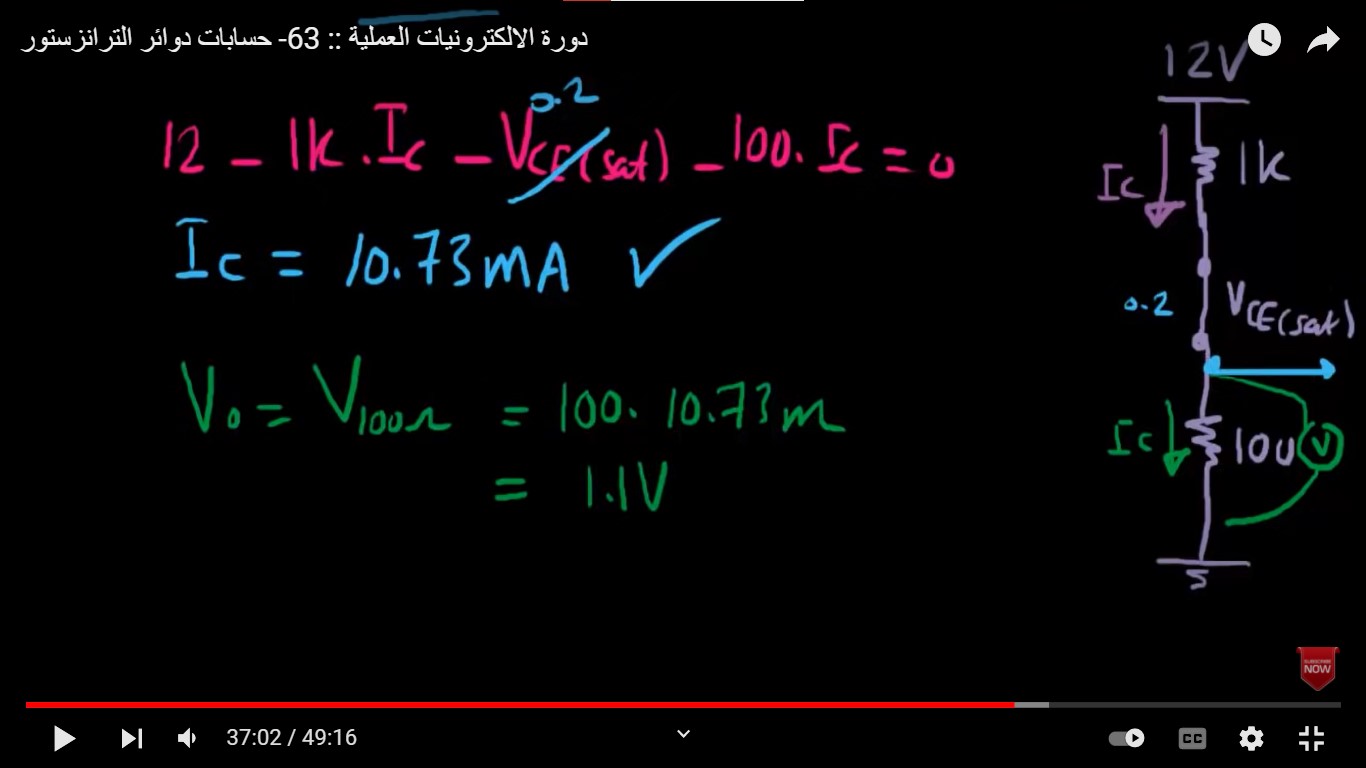 دورة الالكترونيات العملية :: 63- حسابات دوائر الترانزستور
0.2
12 - 1K . Ic - VCE(sat) - 100. Ic = 0
Ic = 10.73mA ✓
Vo = V100Ω = 100. 10.73m
= 1.1V
12V
Ic 1K
0.2 VCE(sat)
Ic 100 V
SUBSCRIBE
NOW
37:02 / 49:16
CC